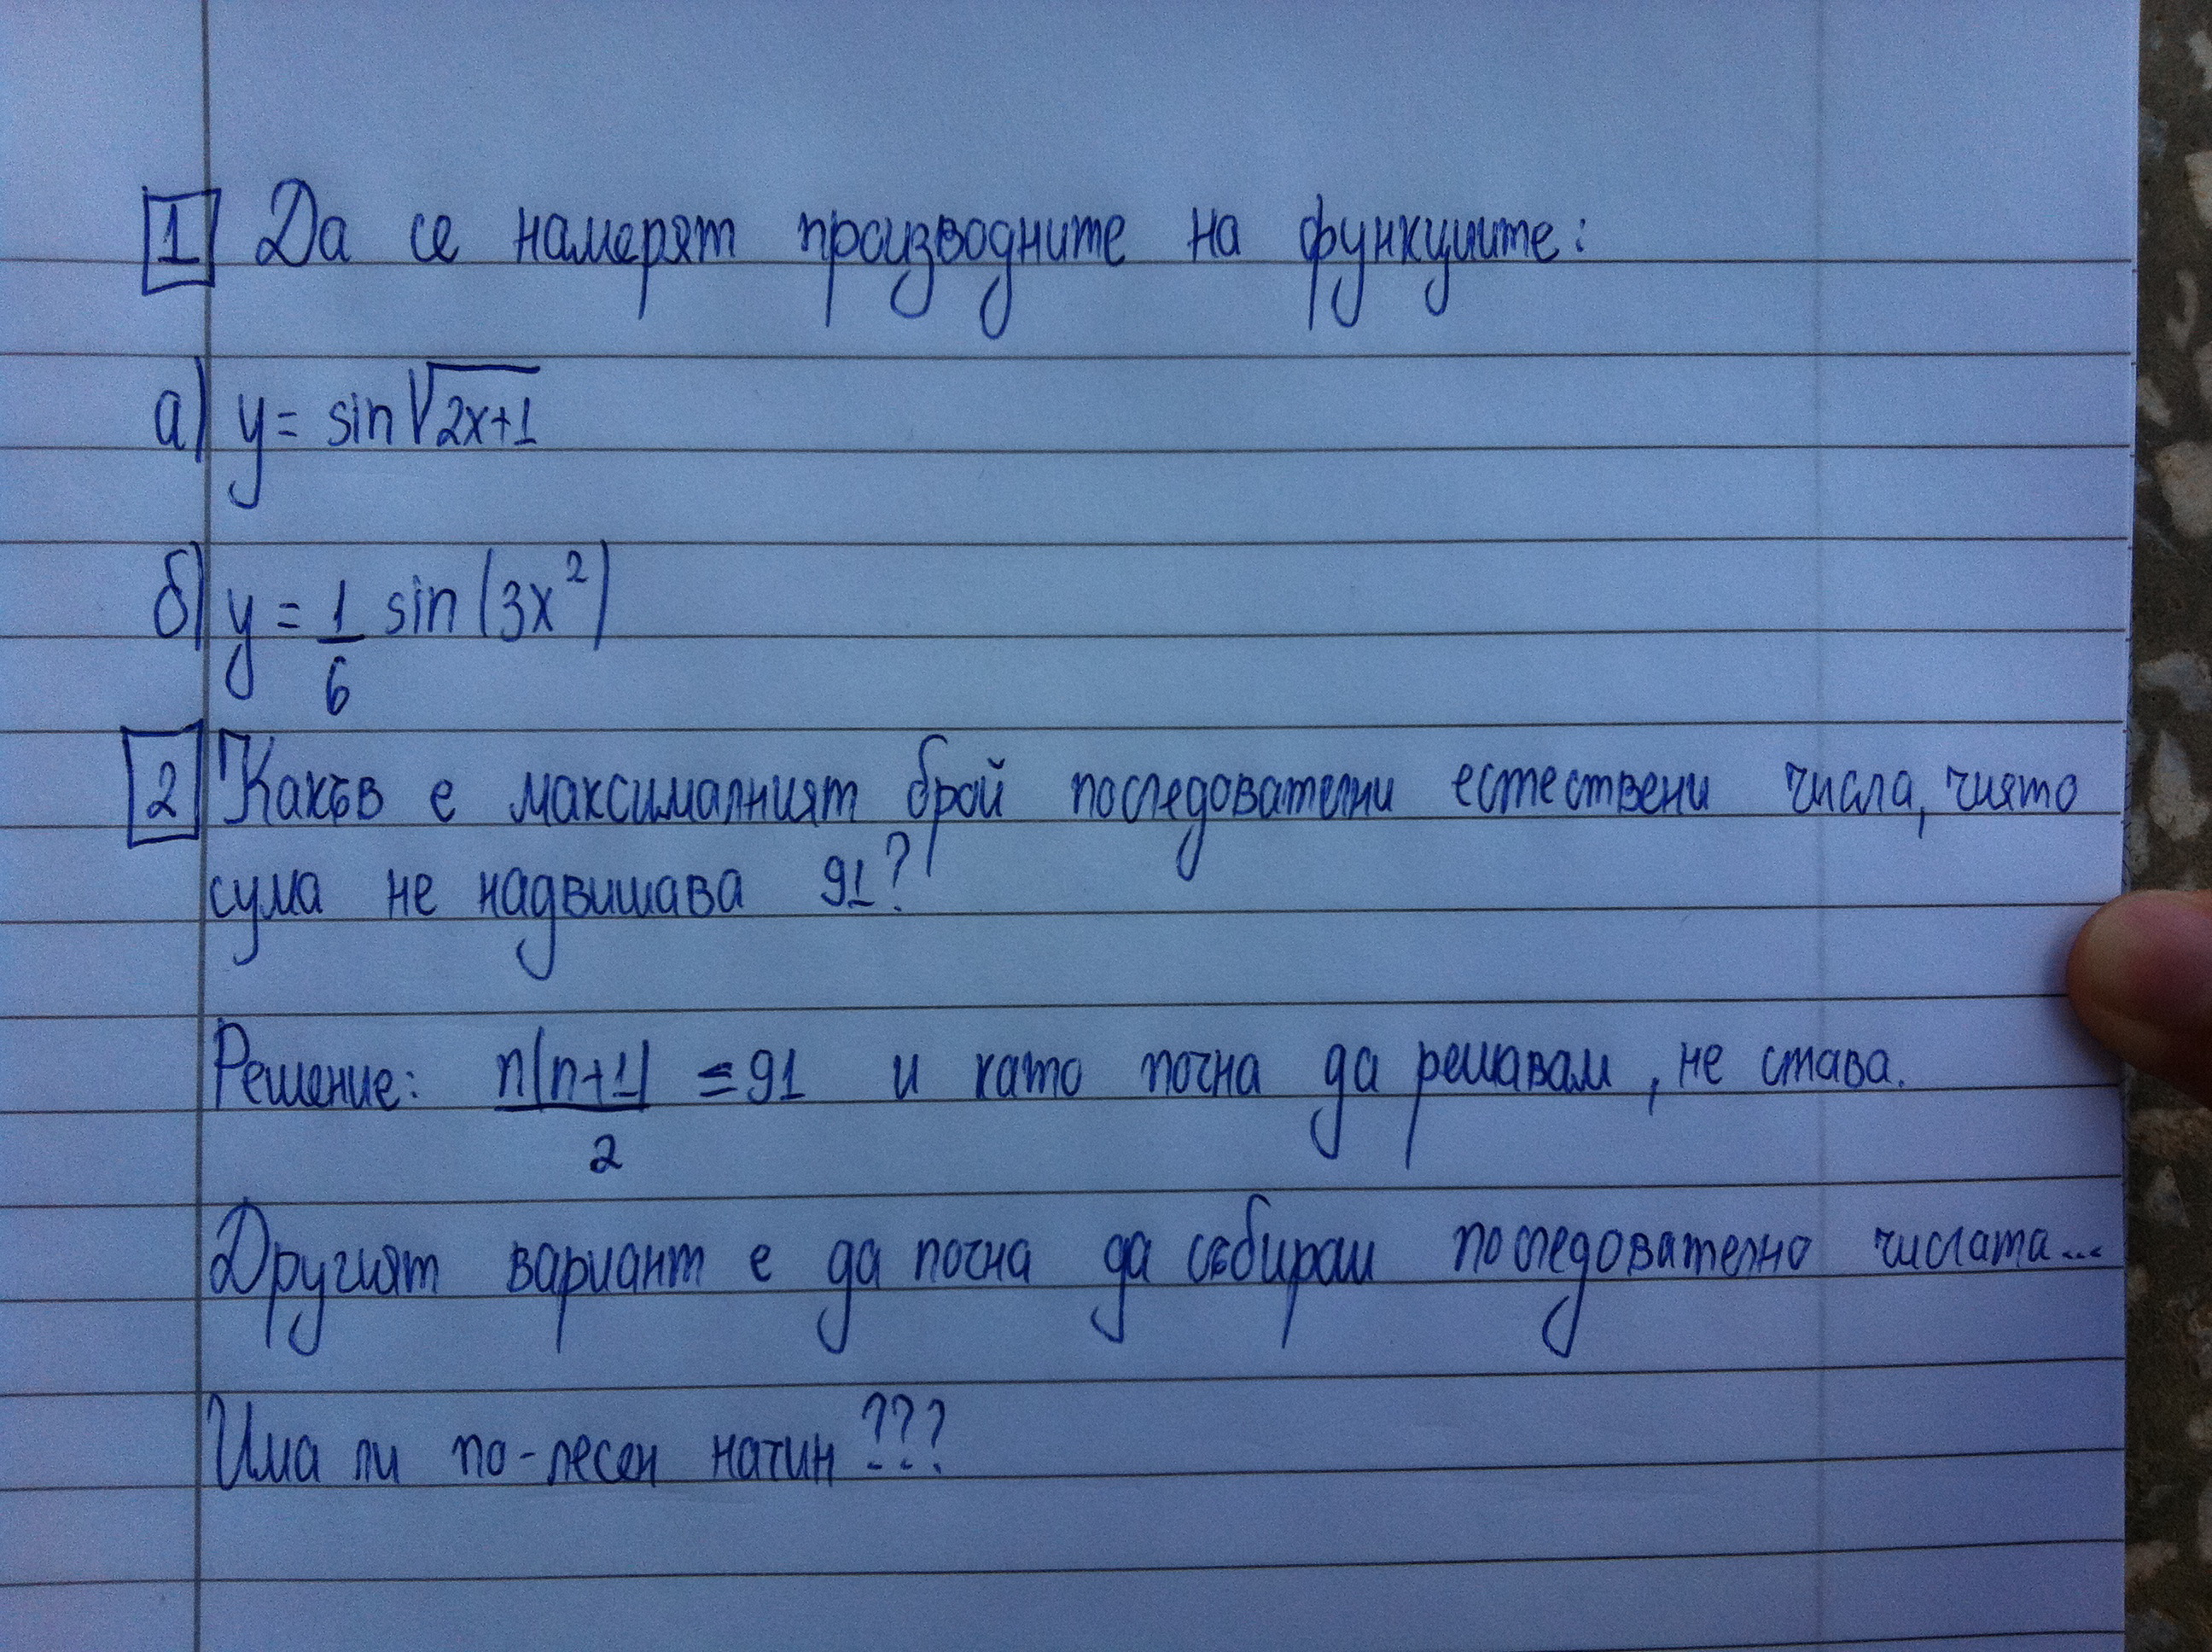 1 Да се намерят производните на функциите:
а) y = sin√(2x+1)
б) y = 1/6 sin(3x²)
2 Какъв е максималният брой последователни естествени числа, чиято
сума не надвишава 91?
Решение: n(n+1)/2 = 91 и като почна да решавам, не става.
Другият вариант е да почна да събирам последователно числата...
Има ли по-лесен начин???